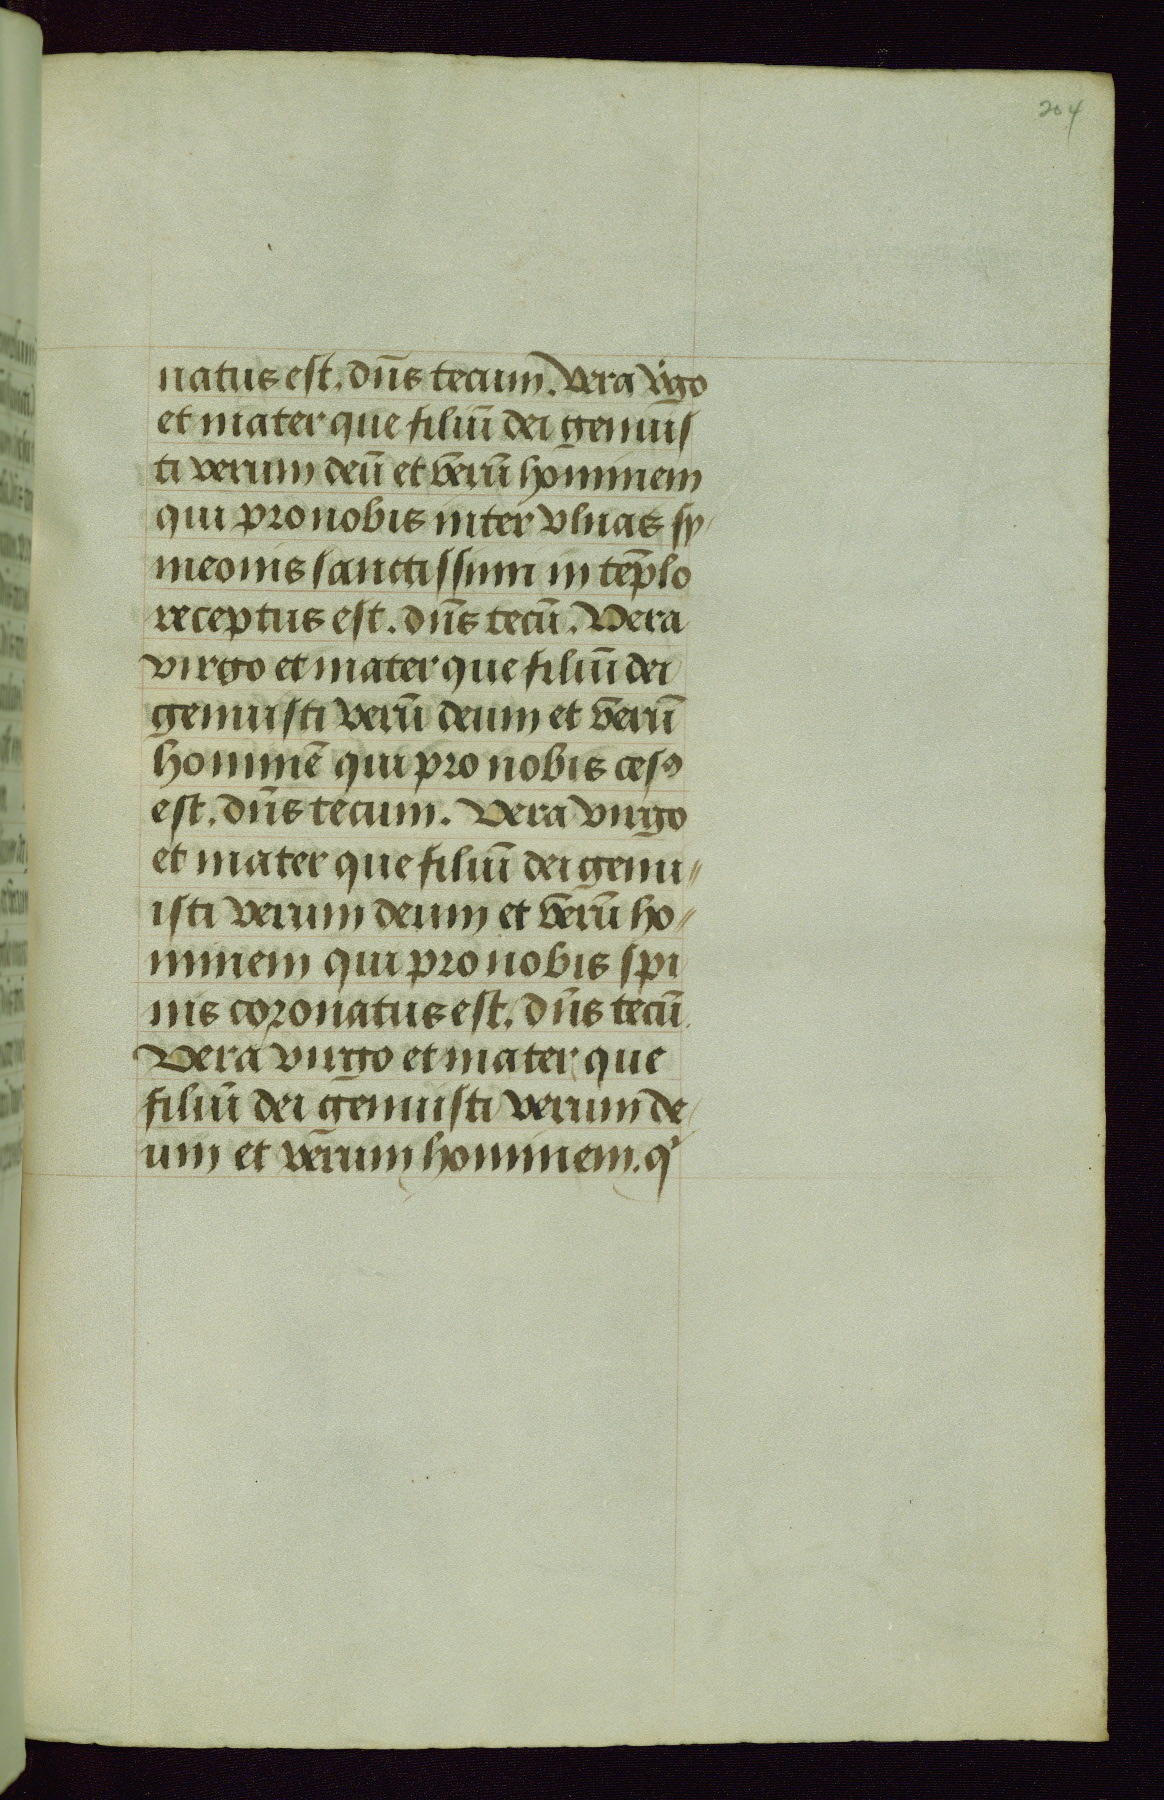 204
natus est. dn̄s tecum. Vera v̇go
et mater que filiū dei genuis
ti verum deū et v̄erū hominem
qui pro nobis inter vlnas sy/
meonis sanctissimi in tēplo
receptus est. dn̄s tecū. Vera
virgo et mater que filiū dei
genuisti verū deum et v̄erū
hominē qui pro nobis cesꝰ
est. dn̄s tecum. Vera virgo
et mater que filiū dei genu//
isti verum deum et v̄erū ho//
minem qui pro nobis spi
nis coronatus est. dn̄s tecū.
Vera virgo et mater que
filiū dei genuisti verum de/
um et v̄erum hominem. qͥ